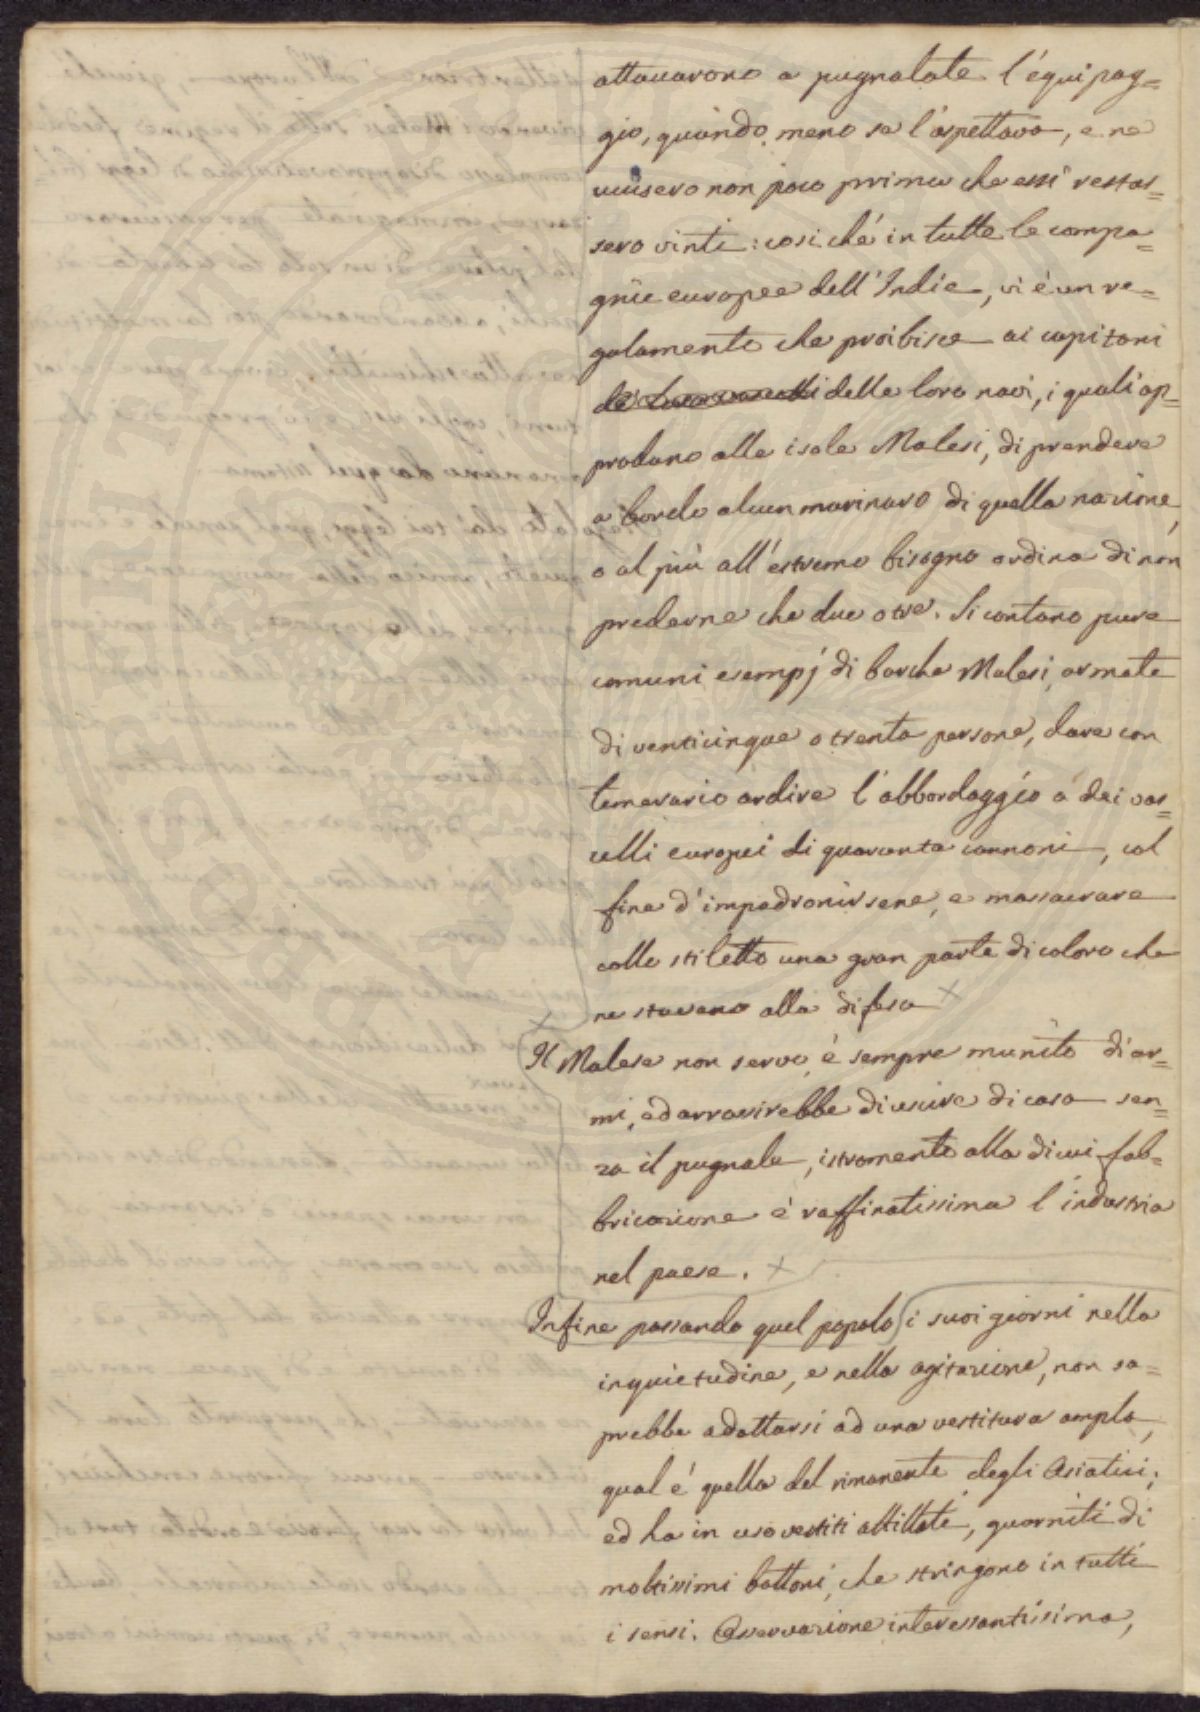 attaccarono a pugnalate l'équipag=
gio, quando meno se l'aspettava, e ne
uccisero non poco prima che essi restas=
sero vinti: così ché in tutte le compa=
gnie europee dell'Indie, vi è un re=
golamento che proibisce ai capitani
delle loro navi, i quali ap=
prodano alle isole Malesi, di prendere
a bordo alcun marinaro di quella nazione,
o al più all'estremo bisogno ordina di non
prederne che due o tre. Si contano pure
comuni esempj di barche Malesi, armate
di venticinque o trenta persone, dare con
temerario ardire l'abbordaggio a dei vas=
celli europei di quaranta cannoni, col
fine d'impadronirsene, e massacrare
collo stiletto una gran parte di coloro che
ne stavano alla difesa
Il Malese non servo, è sempre munito di ar=
mi, ed arrossirebbe di uscire di casa sen=
za il pugnale, istromento alla di cui fab=
bricazione è raffinatissima l'industria
nel paese.
Infine passando quel popolo i suoi giorni nella
inquietudine, e nella agitazione, non sa=
prebbe adattarsi ad una vestitura ampla,
qual è quella del rimanente degli Asiatici;
ed ha in uso vestiti attillati, guarniti di
moltissimi bottoni, che stringono in tutti
i sensi. Osservazione interessantissima,